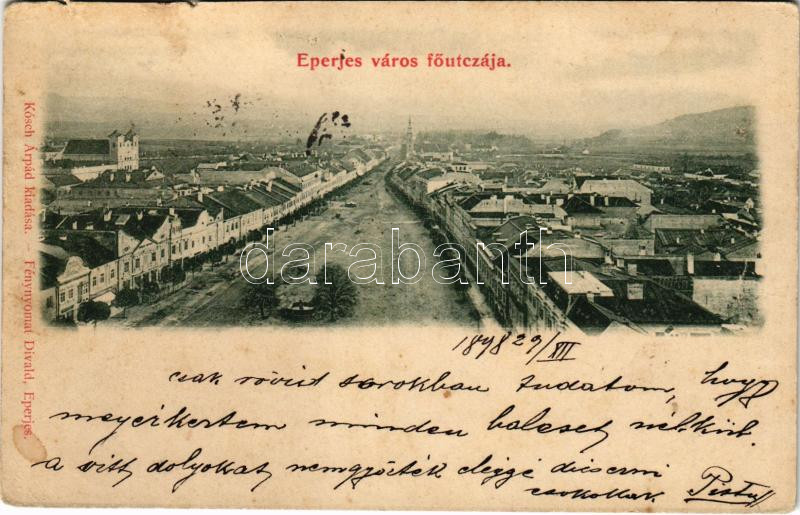 Eperjes város főutczája.
Kósch Árpád kiadása. — Fénynyomat Divald, Eperjes.
darabanth
1898 29/XII
csak rövid sorokban tudatom, hogy
megyérkertem minden baleset nélkül.
a vitt dolyokat nemgyőzték eléggé dicserni
csokollak Pistu